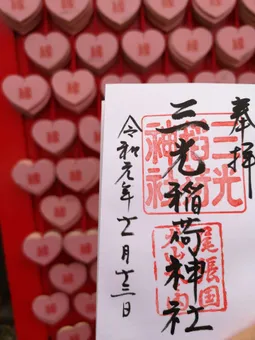 奉拝
三光稲荷神社
三光
稲荷
神社
尾張国
犬山城内
令和元年 月 日
縁